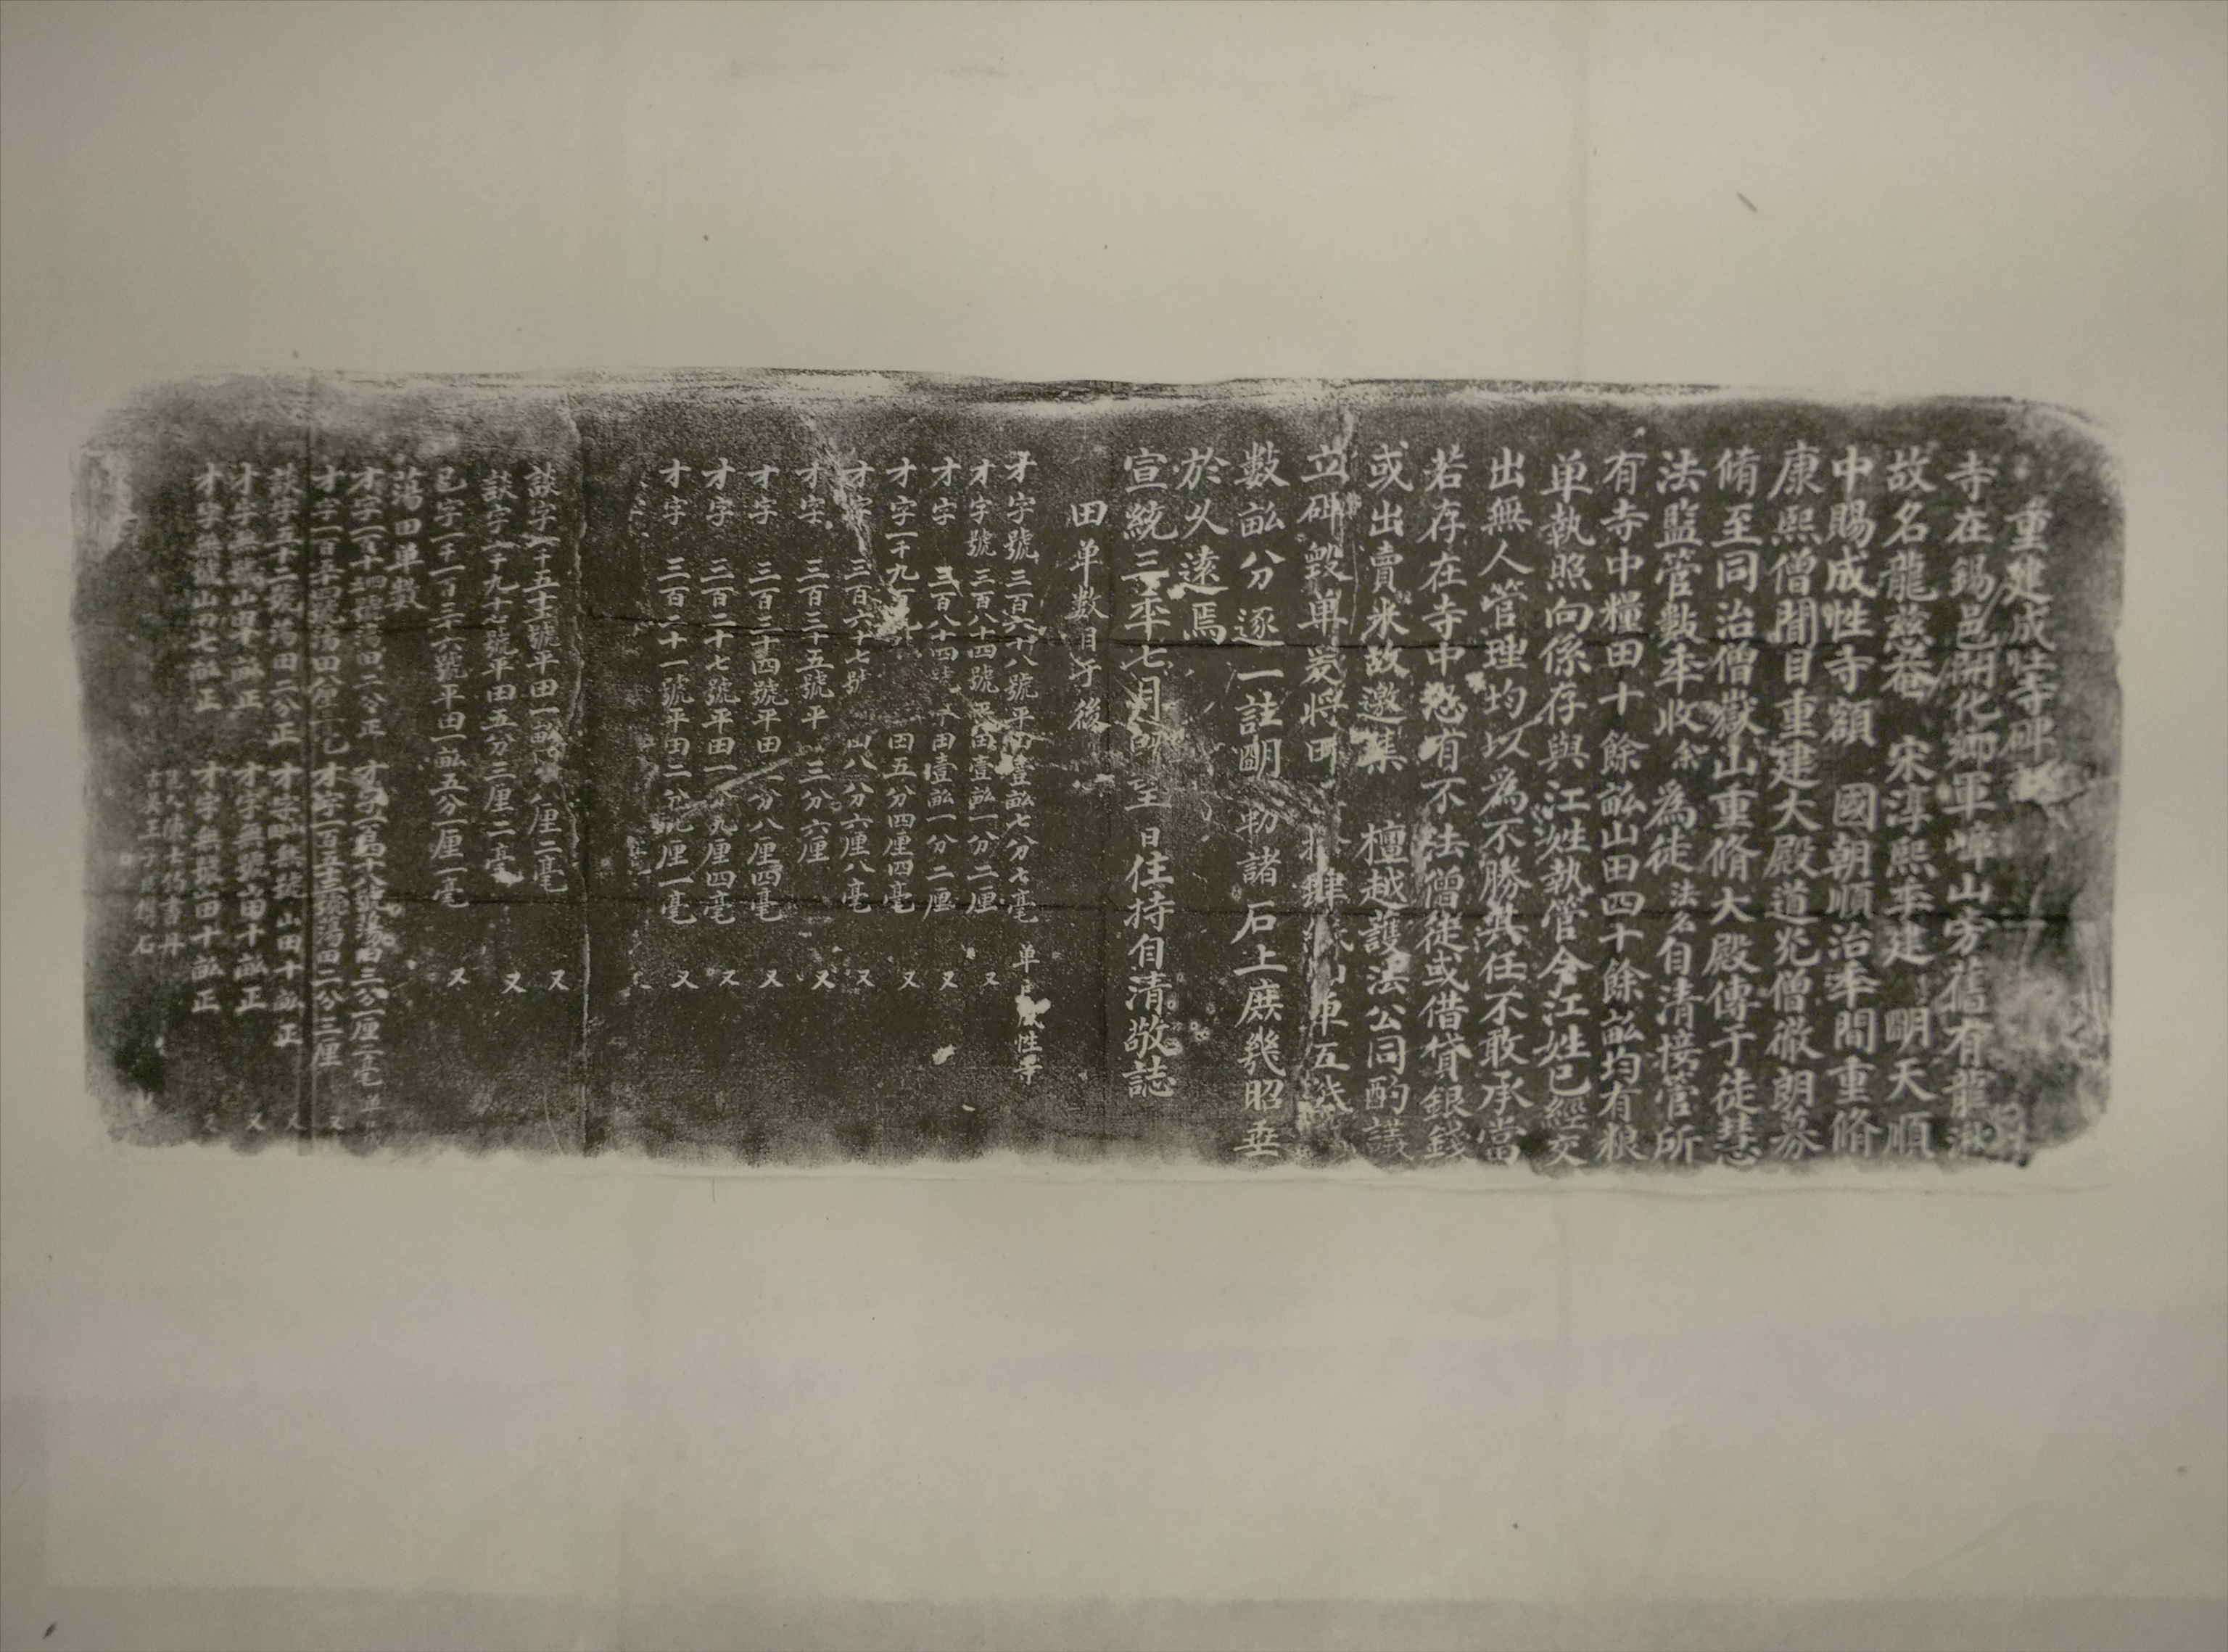 重建成性寺碑
寺在錫邑開化鄉軍嶂山旁舊有龍湫
故名龍慈菴 宋淳熙年建 明天順
中賜成性寺額 國朝順治年間重脩
康熙僧聞目重建大殿道光僧徹朗募
脩至同治僧嶽山重脩大殿傳于徒慧
法監管數年收余為徒法名自清接管所
有寺中糧田十餘畝山田四十餘畝均有粮
单執照向係存與江姓執管今江姓已經交
出無人管理均以為不勝其任不敢承當
若存在寺中恐有不法僧徒或借貸銀錢
或出賣來故邀集 檀越護法公同酌議
立碑毀单爰將田 山单五
數畝分逐一註明勒諸石上庶幾昭垂
於久遠焉
宣統三年七月 日住持自清敬誌
田单数目于後
才字號三百六十八號平田壹畝七分七毫 单 成性寺
才字號三百八十四號平田壹畝一分二厘 又
才字 三百八十四 田壹畝一分二厘 又
才字一千九百 田五分四厘四毫 又
才字 三百六十七號 山八分六厘八毫 又
才字 三百三十五號平 三分六厘 又
才字 三百三十四號平田一分八厘四毫 又
才字 三百二十七號平田一 九厘四毫 又
才字 三百二十一號平田二分九厘一毫 又
談字一千五十三號平田一畝 八厘二毫 又
談字一千九十七號平田五分三厘二毫 又
已字一千一百三十六號平田一畝五分一厘一毫 又
蕩田单數
才字一百 十四號蕩田二分正 才字一百 十八號蕩田三分一厘二毫 单
才字一百 四號蕩田 才字一百五十三號蕩田二分三厘 又
談字五十二號蕩田二分正 才字 無號山田十畝正 又
才字無號山田十畝正 才字無號山田十畝正 又
才字無號山田七畝正 才字無號山田十畝正 又
書丹
石